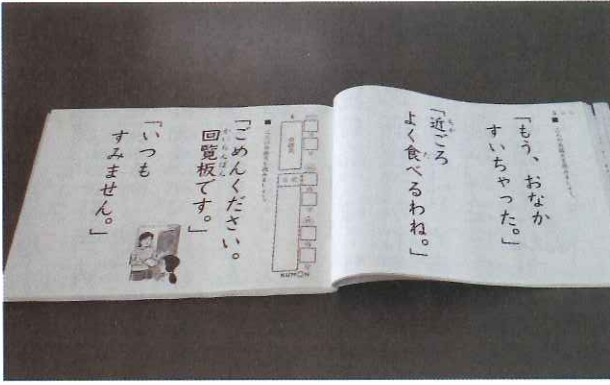 「もう、おなか
すいちゃった。」
「近ごろ
よく食べるわね。」
「ごめんください。
回覧板です。」
「いつも
すみません。」
KUMON